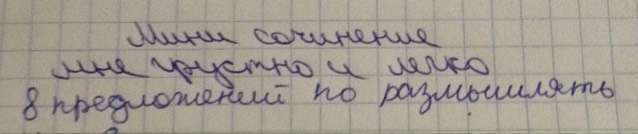 Мини сочинение
мне грустно и легко
8 предложений по размышлять